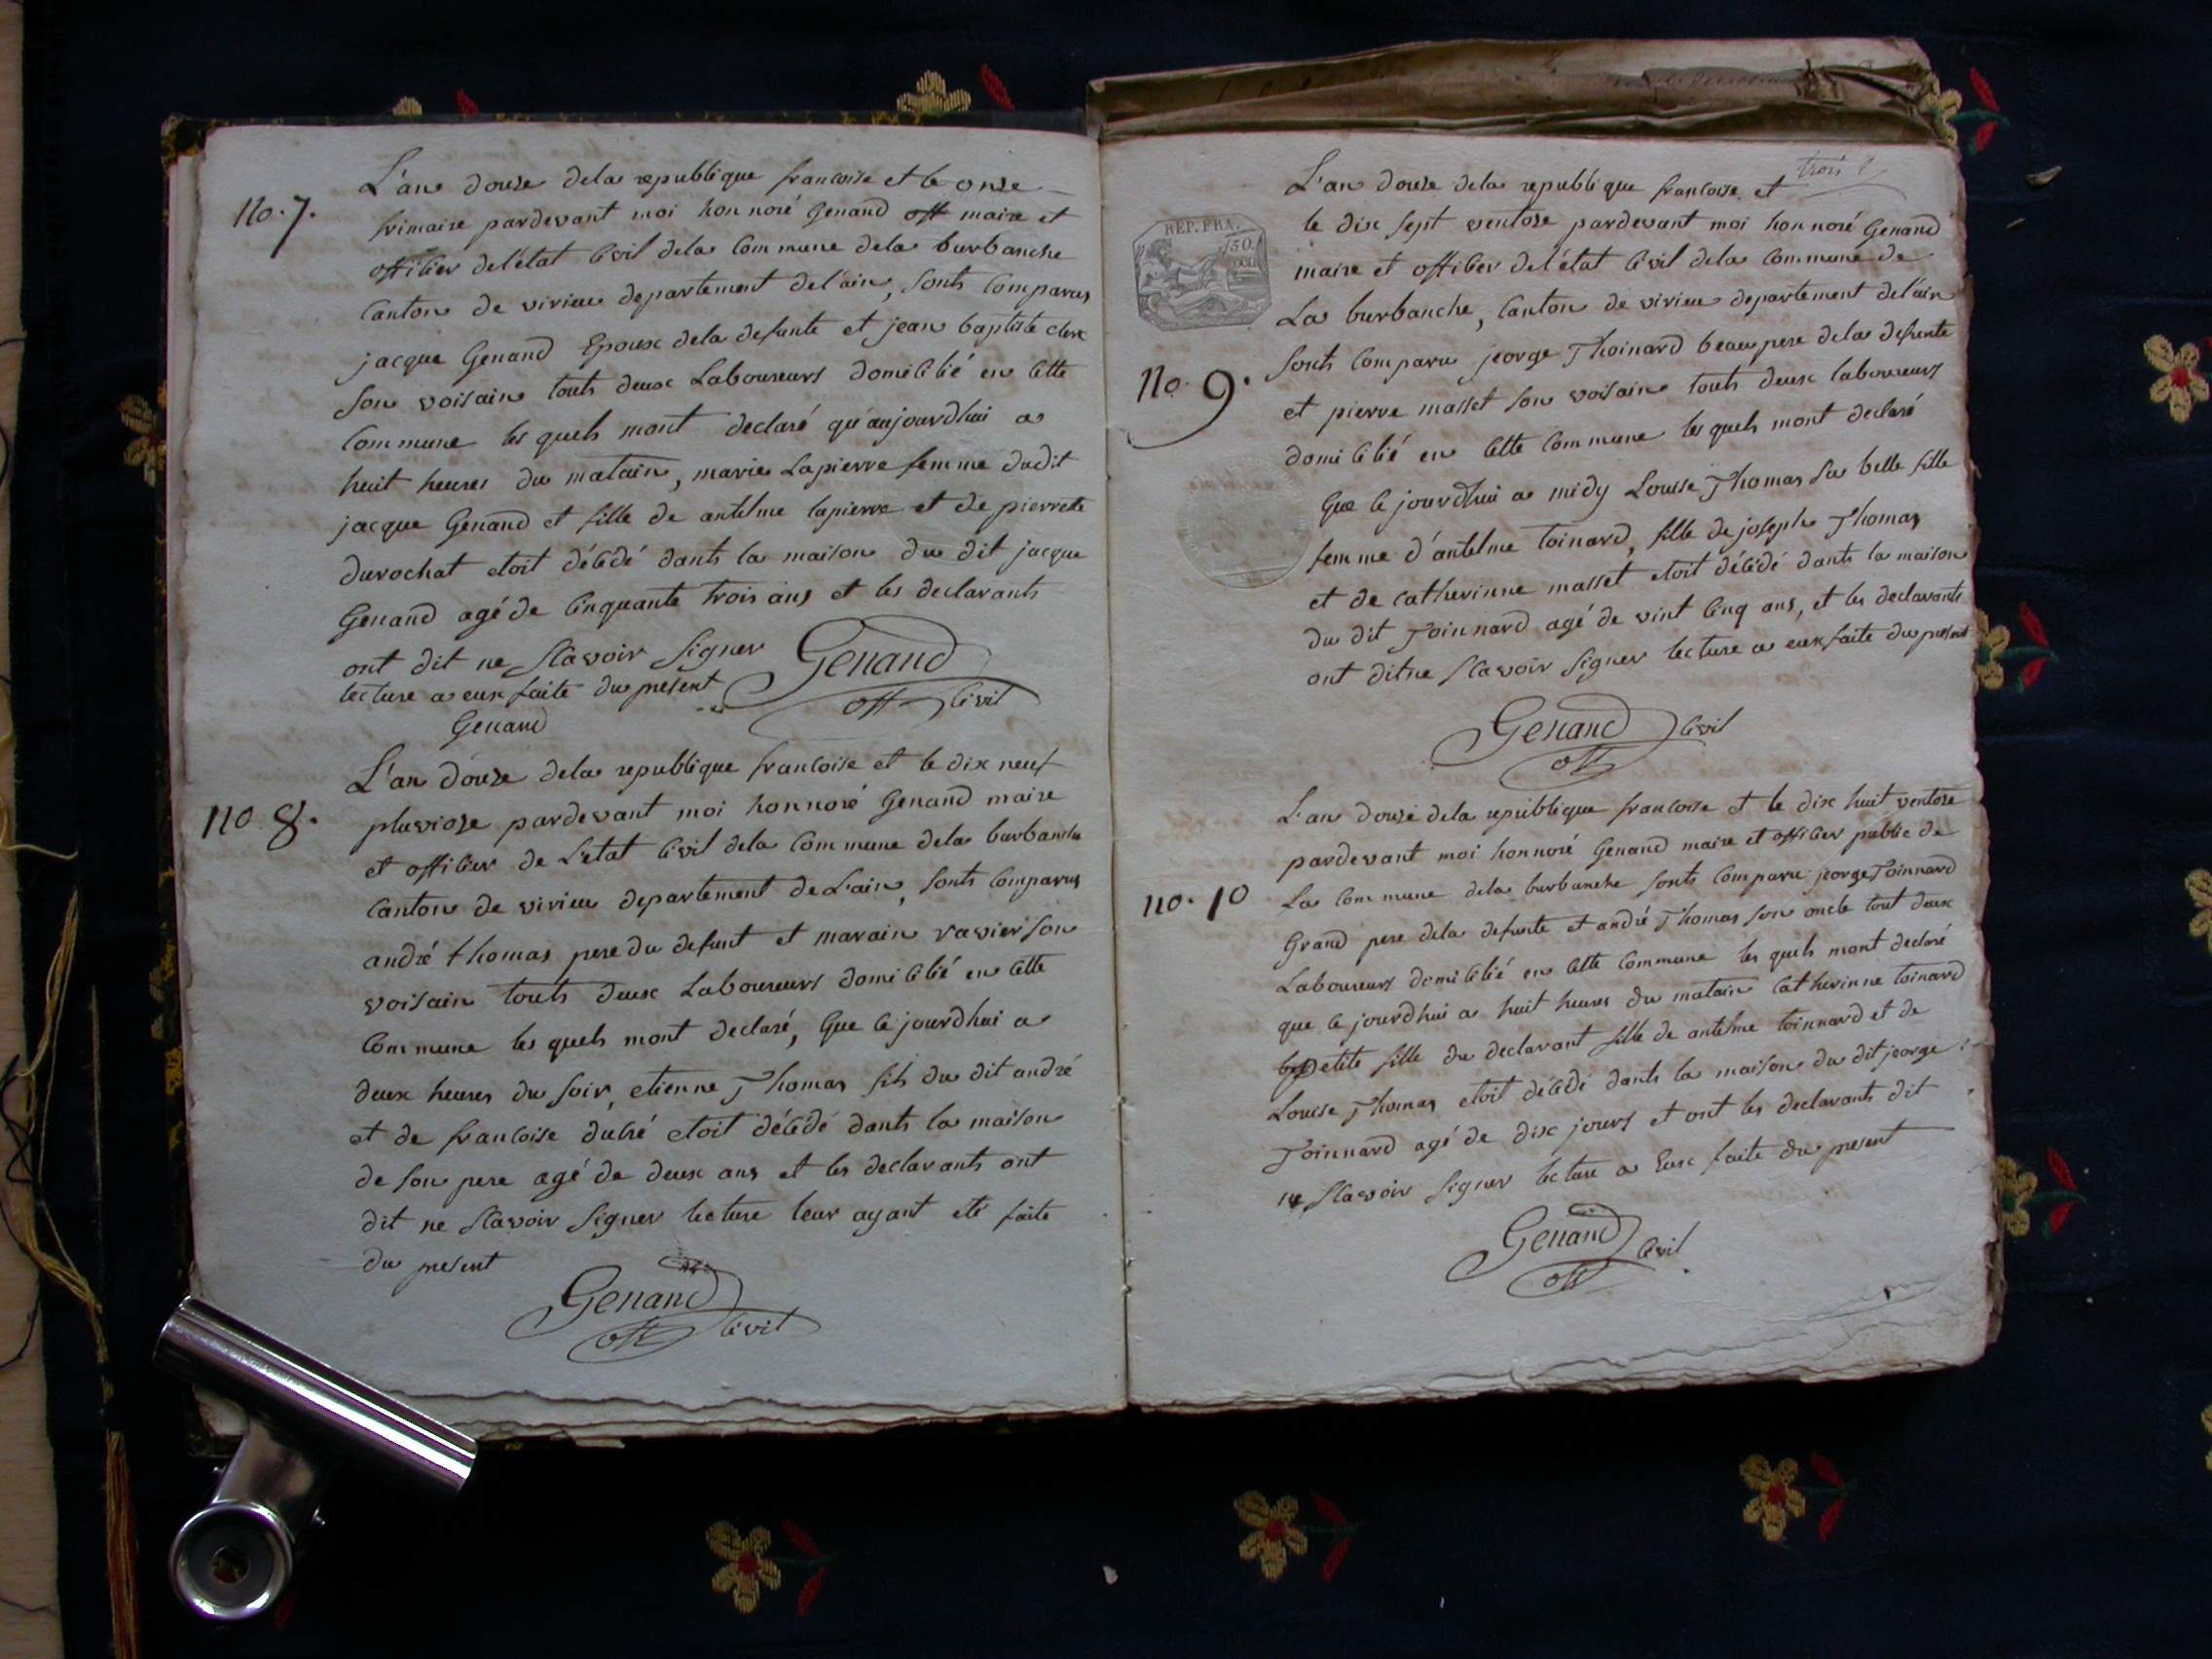 No. 7.
L'an douze dela republique francoise et le onze
frimaire pardevant moi honnoré Genand off maire et
officier deletat civil dela Commune dela burbanche
Canton de virieu departement delain, sonts Comparus
jacque Genand Epoux dela defunte et jean baptiste clerc
son voisain touts deux Laboureurs domicilié en cette
Commune les quels mont declaré qu'aujourdhui a
huit heures du matain, marie Lapierre femme dudit
jacque Genand et fille de antelme lapierre et de pierrete
durochat etoit décédé dants la maison du dit jacque
Genand agé de Cinquante trois ans et les declarants
ont dit ne Scavoir Signer
lecture a eux faite du present
Genand
off Civil
Genand
No. 8.
L'an douze dela republique francoise et le dix neuf
pluviose pardevant moi honnoré Genand maire
et officier de L'etat Civil dela Commune dela burbanche
Canton de virieu departement de L'ain, sonts Comparus
andré thomas pere du defunt et marain ravier son
voisain touts deux Laboureurs domicilié en cette
Commune les quels mont declaré, Que ce jourdhui a
deux heures du soir, etienne Thomas fils du dit andré
et de francoise dubré etoit décédé dants la maison
de son pere agé de deux ans et les declarants ont
dit ne Scavoir Signer lecture leur ayant eté faite
du present
Genand
off Civil
trois
REP. FRA.
50.
L'an douze dela republique francoise et
le dix sept ventose pardevant moi honnoré Genand
maire et officier del'état Civil dela Commune de
La burbanche, Canton de virieu departement delain
No. 9.
sonts Comparu jeorge Thoinard beau pere dela defunte
et pierre masset son voisain touts deux laboureurs
domicilié en cette Commune les quels mont declaré
Que ce jourdhui a midy Louise Thomas sa belle fille
femme d'antelme toinard, fille de joseph Thomas
et de catherinne masset etoit décédé dants la maison
du dit Toinnard agé de vint Cinq ans, et les declarants
ont dit ne Scavoir Signer lecture a eux faite du present
Genand
off Civil
L'an douze dela republique francoise et le dix huit ventose
pardevant moi honnoré Genand maire et officier public de
No. 10
La Commune dela burbanche sonts Comparu jeorge Toinnard
Grand pere dela defunte et andré Thomas son oncle tout deux
Laboureurs domicilié en cette Commune les quels mont declaré
que ce jourdhui a huit heures du matain Catherinne toinard
petite fille du declarant fille de antelme toinnard et de
Louise Thomas etoit décédé dants la maison du dit jeorge
Toinnard agé de dix jours et ont les declarants dit
ne Scavoir Signer lecture a Eux faite du present
Genand
off Civil